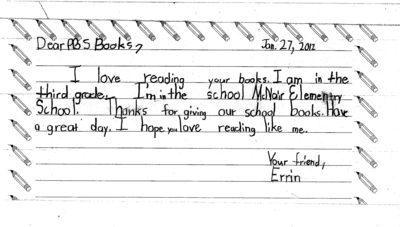 Dear PBS Books, Jan. 27, 2012
I love reading your books. I am in the
third grade. I'm in the school McNair Elementry
School. Thanks for giving our school books. Have
a great day. I hope you love reading like me.
Your friend,
Errin